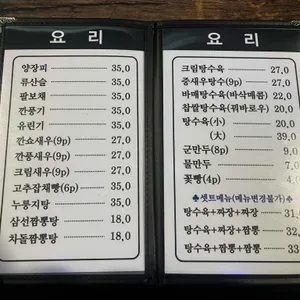 요 리
양장피 35,0
류산슬 35,0
팔보채 35,0
깐풍기 35,0
유린기 35,0
깐쇼새우(9p) 27,0
깐풍새우(9p) 27,0
크림새우(9p) 27,0
고추잡채빵(6p) 35,0
누룽지탕 35,0
삼선짬뽕탕 18,0
차돌짬뽕탕 18,0
요 리
크림탕수육 27,0
중새우탕수(9p) 27,0
바매탕수육(바삭매콤) 22,0
찹쌀탕수육(꿔바로우) 20,0
탕수육(小) 20,0
(大) 39,0
군만두(8p) 9,0
물만두 7,0
꽃빵(4p) 4,0
♣셋트메뉴(메뉴변경불가)♣
탕수육+짜장+짜장 31,
탕수육+짜장+짬뽕 32,
탕수육+짬뽕+짬뽕 33